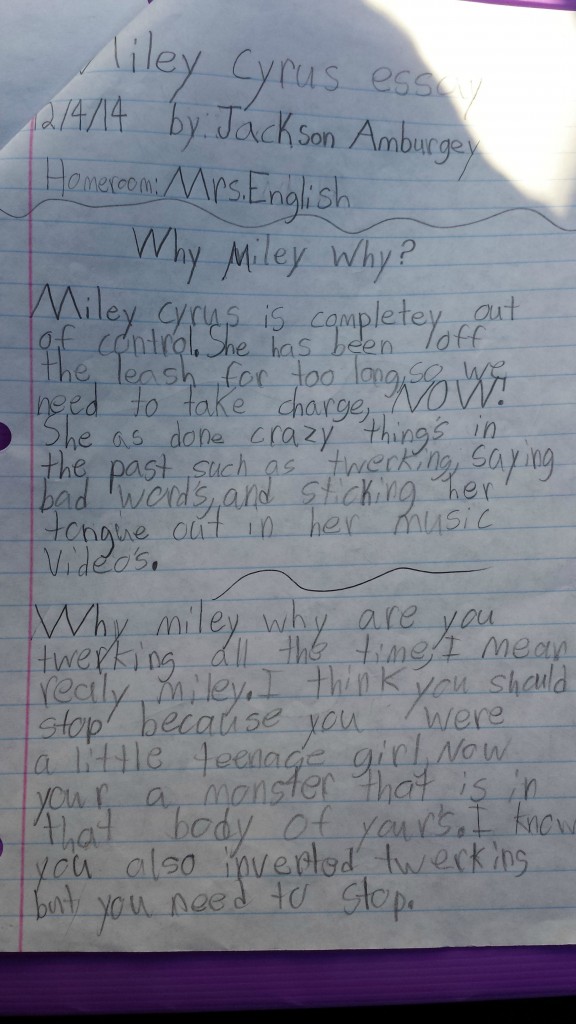 Miley Cyrus essay
12/4/14 by: Jackson Amburgey
Homeroom: Mrs. English
Why Miley Why?
Miley Cyrus is completey out
of control. She has been off
the leash for too long, so we
need to take charge, NOW!
She as done crazy thing's in
the past such as twerking, saying
bad word's, and sticking her
tongue out in her music
Video's.
Why miley why are you
twerking all the time, I mean
realy miley. I think you should
stop because you were
a little teenage girl, Now
your a monster that is in
that body of your's. I know
you also invented twerking
but you need to stop.